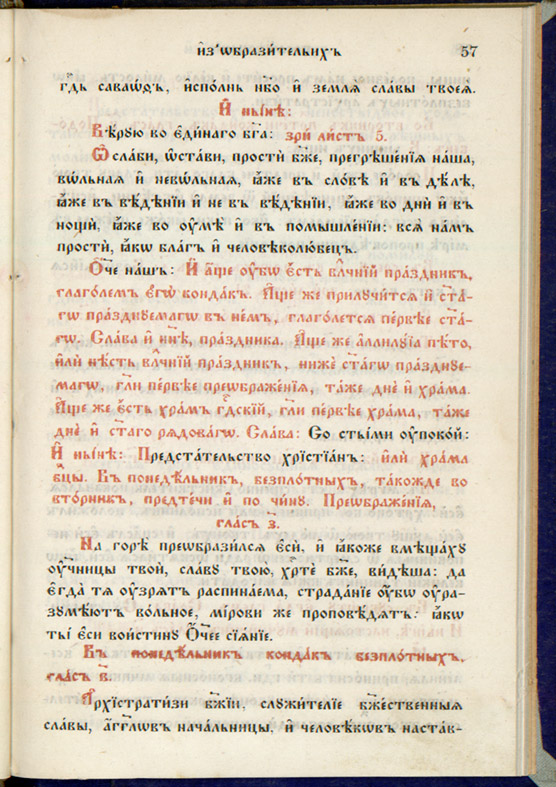 и҆з̾ѡбрази́тельныхъ 57
гдⷭ҇ь саваѡ́ѳъ, и҆спо́лнь нб҃о и҆ землѧ̀ сла́вы твоеѧ̀.
И҆ ны́нѣ:
Вѣ́рую во є҆ди́наго бг҃а: зрѝ ли́стъ 5.
Ѡ҆сла́би, ѡ҆ста́ви, простѝ бж҃е, прегрѣшє́нїѧ на̑ша,
вѡ́льнаѧ и҆ невѡ́льнаѧ, ꙗ҆̀же въ сло́вѣ и҆ въ дѣ́лѣ,
ꙗ҆̀же въ вѣ́дѣнїи и҆ не въ вѣ́дѣнїи, ꙗ҆̀же во днѝ и҆ въ
нощѝ, ꙗ҆̀же во ᲂу҆мѣ̀ и҆ въ помышле́нїи: всѧ̑ на́мъ
простѝ, ꙗ҆́кѡ бла́гъ и҆ человѣколю́бецъ.
Ѻ҆́ч҃е на́шъ: И҆ а҆́ще ᲂу҆́бѡ є҆́сть влⷣчнїй пра́здникъ,
глаго́лемъ є҆гѡ̀ конда́къ. А҆́ще же прилучи́тсѧ и҆ ст҃а́-
гѡ пра́зднуемагѡ въ не́мъ, глаго́летсѧ пе́рвѣе ст҃а́-
гѡ. Сла́ва и҆ ны́нѣ, пра́здника. А҆́ще же а҆ллилꙋ́їа пѣ́то,
и҆лѝ нѣ́сть влⷣчнїй пра́здникъ, нижѐ ст҃а́гѡ пра́зднуе-
магѡ, гл҃и пе́рвѣе преѡбраже́нїѧ, та́же днѐ и҆ хра́ма.
А҆́ще же є҆́сть хра́мъ гдⷭ҇скїй, гл҃и пе́рвѣе хра́ма, та́же
днѐ и҆ ст҃а́гѡ рѧдова́гѡ. Сла́ва: Со ст҃ы́ми ᲂу҆поко́й:
И҆ ны́нѣ: Предста́тельство хрⷭ҇тїа́нъ: и҆лѝ хра́ма
бц҃ы. Въ понедѣ́льникъ, безпло́тныхъ, та́кожде во
вто́рникъ, предте́чи, и҆ по чи́ну. Преѡбраже́нїѧ,
гла́съ з҃.
На горѣ̀ преѡбрази́лсѧ є҆сѝ, и҆ ꙗ҆́коже вмѣща́ху
ᲂу҆чн҃цы̀ твоѝ, сла́ву твою̀, хрⷭ҇тѐ бж҃е, ви́дѣша: да
є҆гда̀ тѧ̀ ᲂу҆́зрѧтъ распина́ема, страда́нїе ᲂу҆́бѡ ᲂу҆ра-
зумѣ́ютъ во́льное, мі́рови же проповѣ́дѧтъ: ꙗ҆́кѡ
ты̀ є҆сѝ вои́стину ѻ҆́ч҃ее сїѧ́нїе.
Въ понедѣ́льникъ конда́къ безпло́тныхъ,
гла́съ в҃.
А҆рхїстрати́зи бж҃їи, служи́телїе бж҃е́ственныѧ
сла́вы, а҆́гг҃лѡвъ нача́льницы, и҆ человѣ́кѡвъ наста́в-